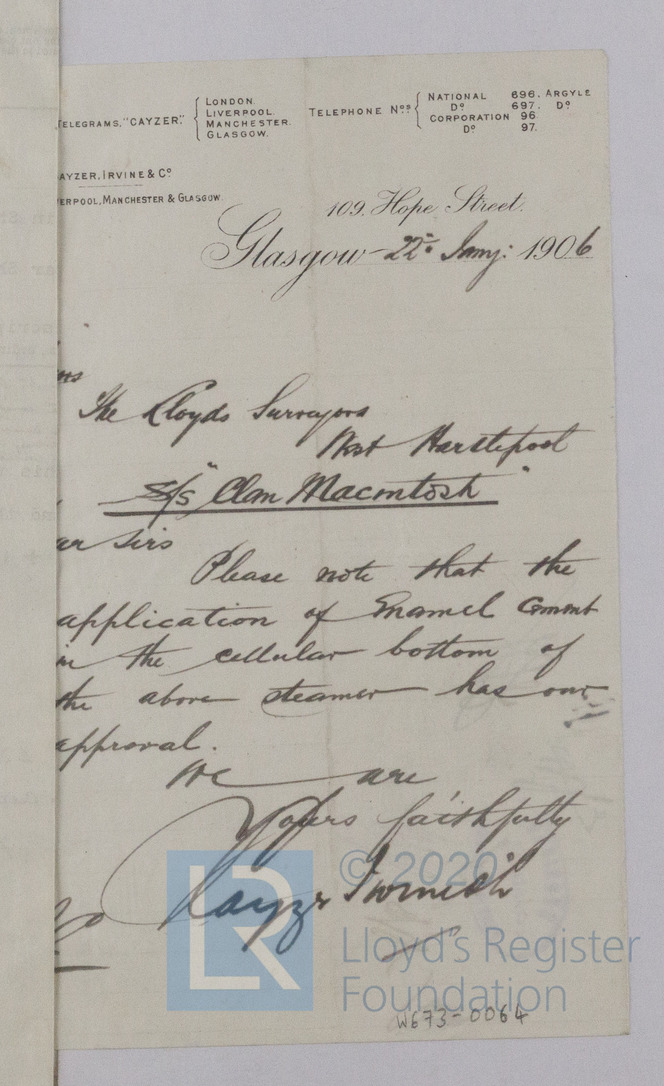 TELEGRAMS, "CAYZER." LONDON. LIVERPOOL. MANCHESTER. GLASGOW.
TELEPHONE Nos NATIONAL 696. ARGYLE
Do 697. Do
CORPORATION 96
Do 97.
AYZER, IRVINE & Co
ERPOOL, MANCHESTER & GLASGOW.
109, Hope Street.
Glasgow 22nd Jany: 1906
The Lloyds Surveyors
West Hartlepool
S/S "Clan Macintosh"
ar Sirs
Please note that the
application of Enamel Cement
in the cellular bottom of
the above steamer has our
approval.
We are
Yours faithfully
Cayzer Irvine &
© 2020
LR
Lloyd's Register
Foundation
W673-0064